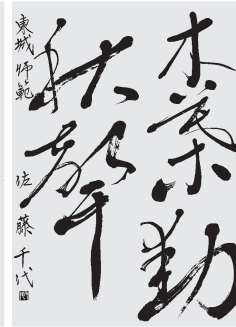 木葉動
秋聲
東城師範 佐藤千代